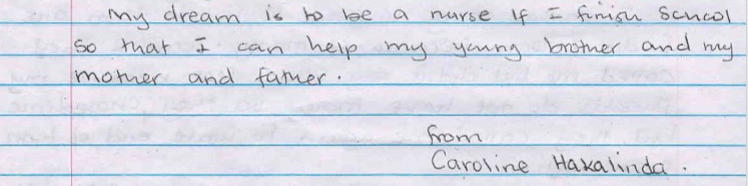 My dream is to be a nurse If I finish School
so that I can help my young brother and my
mother and father.
from
Caroline Hakalinda.